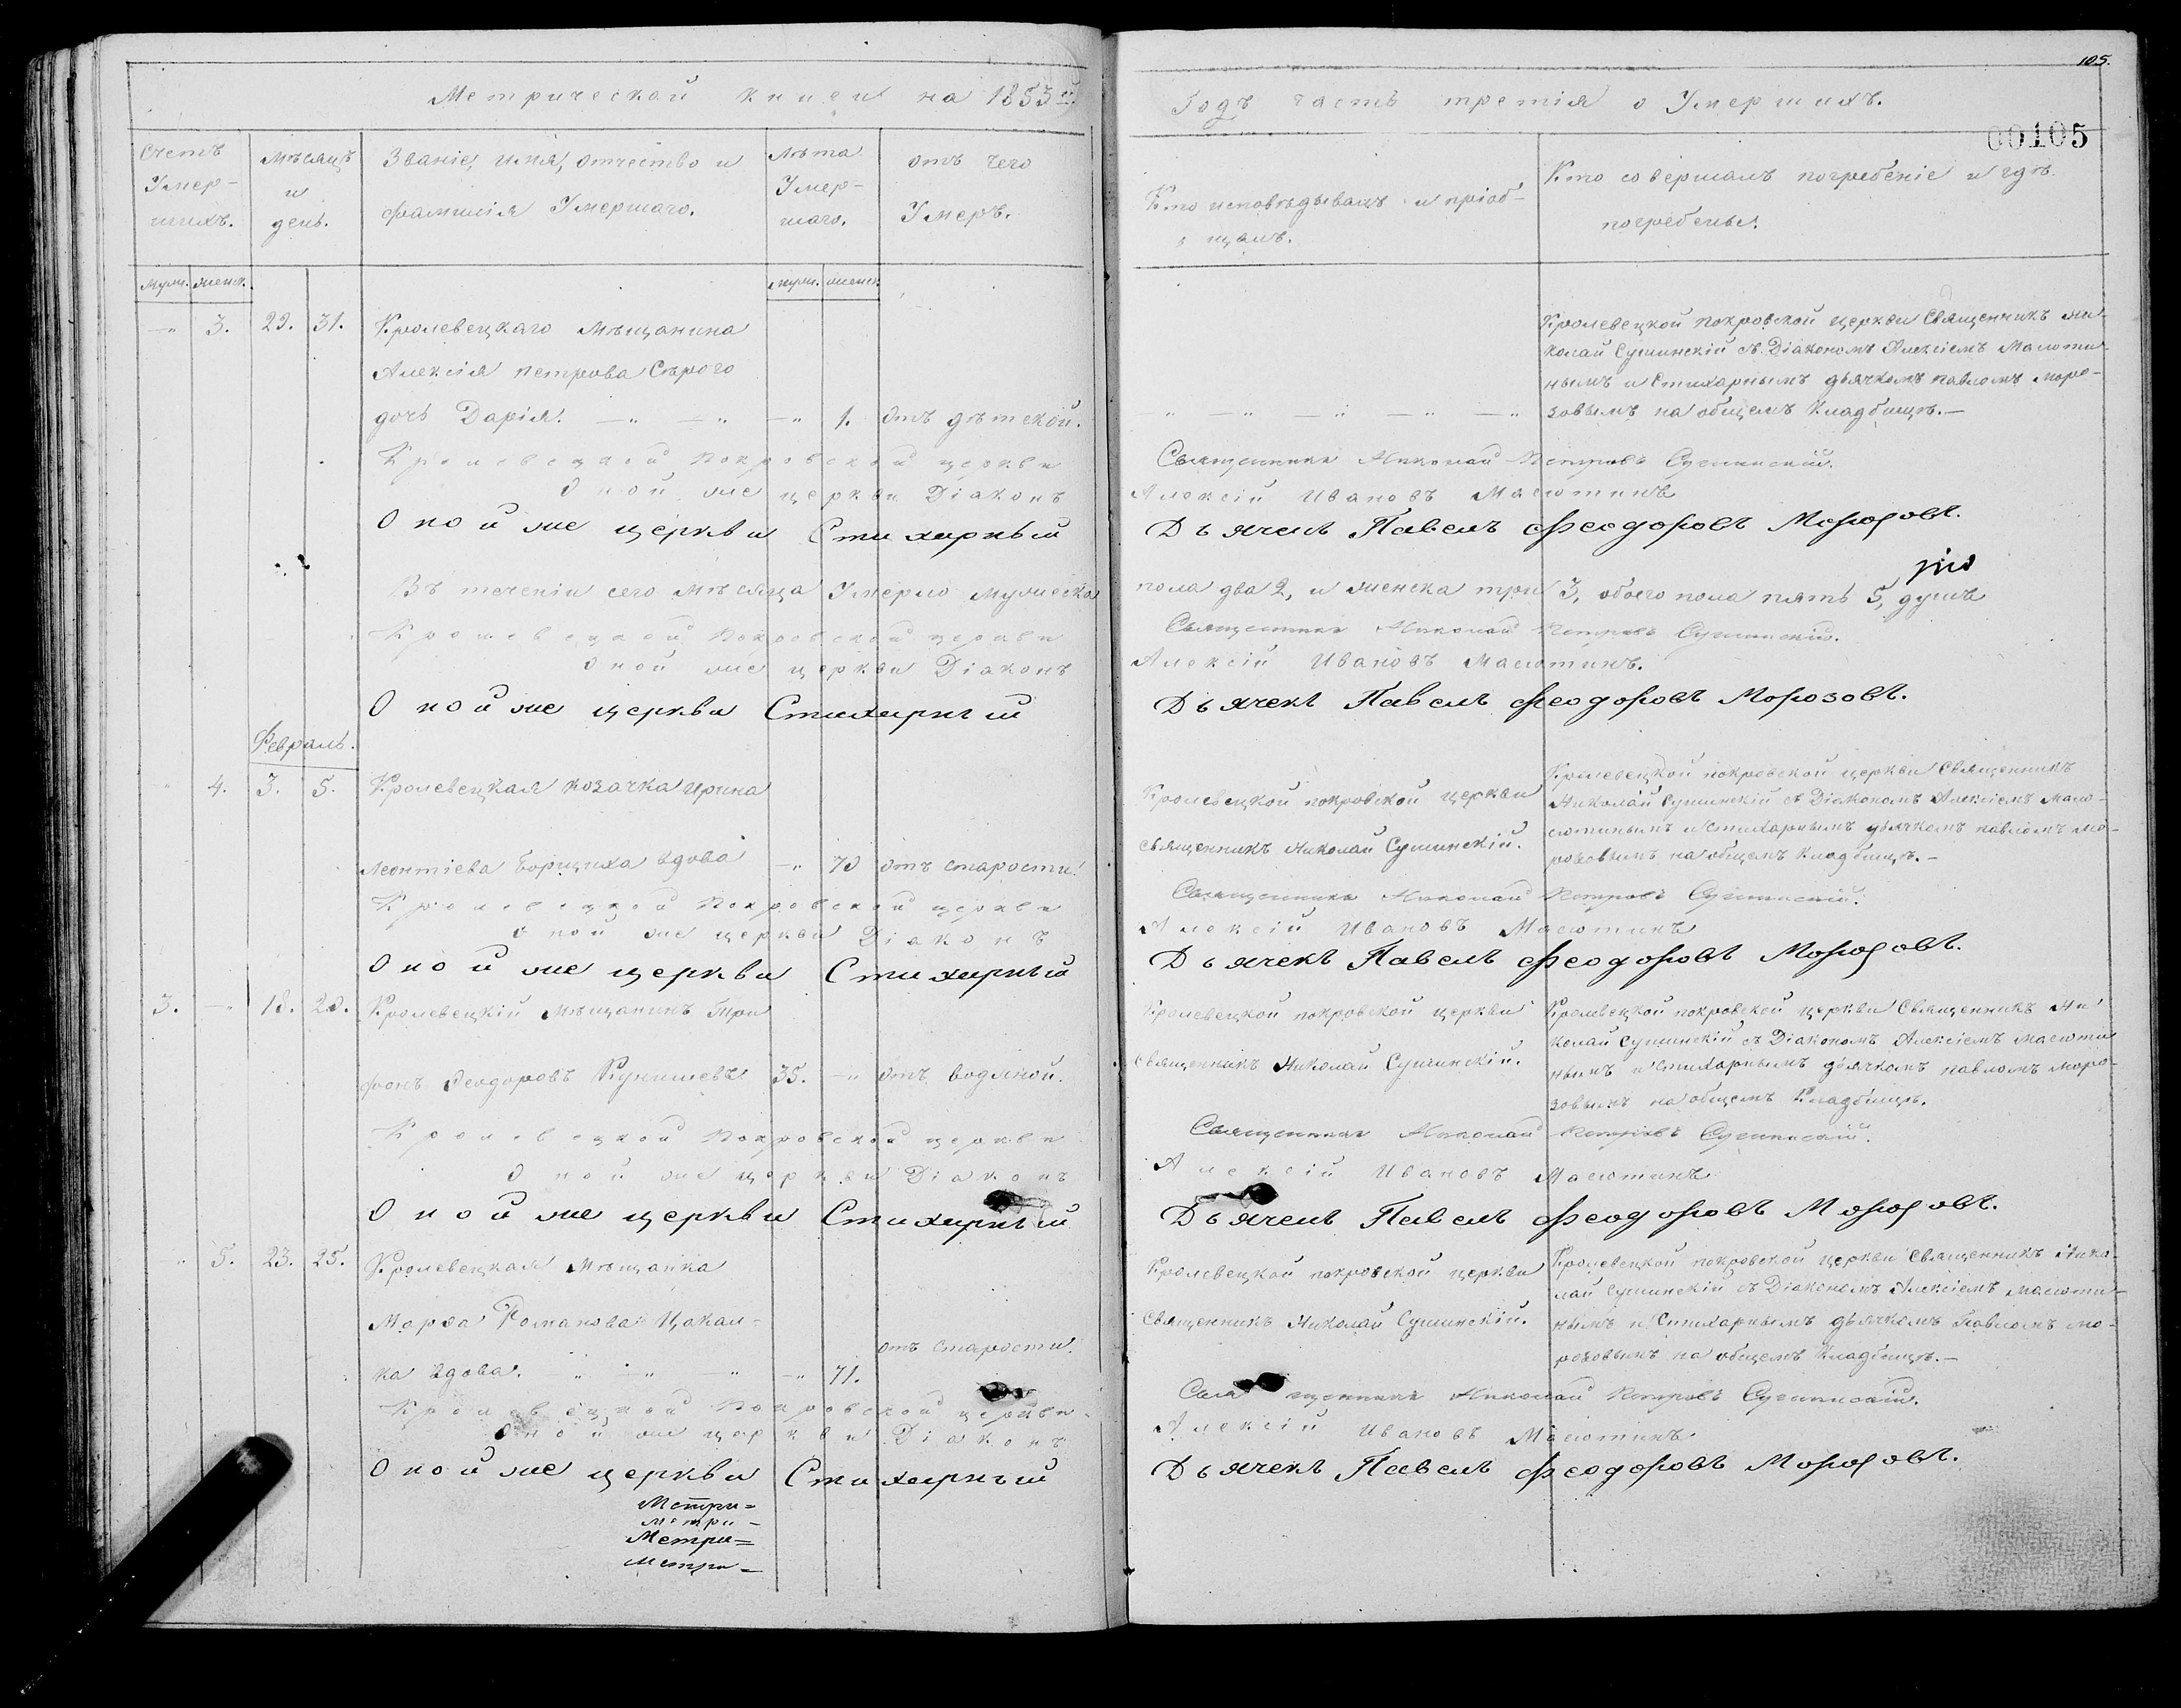 105.
00105
Метрической книги на 1853й.
Годъ часть третія о Умершихъ.
Счетъ Умер-
шихъ.
Мѣсяцъ
и
день.
Званіе, имя, отчество и
фамилія Умершаго.
Лѣта
Умер-
шаго.
отъ чего
Умеръ.
Кто исповѣдывалъ и пріоб-
щалъ.
Кто совершалъ погребеніе и гдѣ
погребены.
муж. женск.
муж. женск.
—„ 3. 29. 31. Кролевецкаго Мѣщанина
Алексія петрова Сѣрого
дочь Дарія. —„ —„ —„ 1. Отъ дѣтской.
Кролевецкой покровской церкви Священникъ Ни-
колай Сушинскій съ Діакономъ Алексіемъ Масюти-
нымъ и Стихарнымъ дьячкомъ павломъ Моро-
„ „ —„ —„ —„ зовымъ на общемъ Кладбищѣ.—
Кролевецкой Покровской церкви Священникъ Николай Петровъ Сушинскій.
Оной же церкви Діаконъ Алексій Ивановъ Масютинъ
Оной же церкви Стихарный Дьячекъ Павелъ Феодоровъ Морозовъ.
Въ теченіи сего мѣсяца Умерло мужеска пола два 2, и женска три 3, обоего пола пять 5, душъ
Кролевецкой Покровской церкви Священникъ Николай Петровъ Сушинскій.
Оной же церкви Діаконъ Алексій Ивановъ Масютинъ.
Оной же церкви Стихарный Дьячекъ Павелъ Феодоровъ Морозовъ.
Февраль.
„ 4. 3. 5. Кролевецкая козачка Ирина
Леонтіева Борщиха вдова —„ 70 отъ старости.
Кролевецкой покровской церкви
священникъ Николай Сушинскій.
Кролевецкой покровской церкви Священникъ
Николай Сушинскій съ Діакономъ Алексіемъ Мас-
ютинымъ и Стихарнымъ дьячкомъ павломъ мо-
розовымъ на общемъ Кладбищѣ.—
Кролевецкой Покровской церкви Священникъ Николай Петровъ Сушинскій.
Оной же церкви Діаконъ Алексій Ивановъ Масютинъ
Оной же церкви Стихарный Дьячекъ Павелъ Феодоровъ Морозовъ.
3. —„ 18. 20. Кролевецкій Мѣщанинъ Три
фонъ Феодоровъ 35. —„ отъ водяной.
Кролевецкой покровской церкви
священникъ Николай Сушинскій.
Кролевецкой покровской церкви Священникъ Ни
колай Сушинскій съ Діакономъ Алексіемъ масюти
нымъ и Стихарнымъ дьячкомъ павломъ моро-
зовымъ на общемъ Кладбищѣ.
Кролевецкой Покровской церкви Священникъ Николай Петровъ Сушинскій.
Оной же церкви Діаконъ Алексій Ивановъ Масютинъ
Оной же церкви Стихарный Дьячекъ Павелъ Феодоровъ Морозовъ.
„ 5. 23. 25. Кролевецкая Мѣщанка
Марѳа Романова Цакал-
ка вдова. „ „ —„ —„ 71.
отъ старости.
Кролевецкой покровской церкви
священникъ Николай Сушинскій.
Кролевецкой покровской церкви священникъ Нико-
лай Сушинскій съ Діакономъ Алексіемъ масюти-
нымъ и Стихарнымъ дьячкомъ Павломъ мо-
розовымъ на общемъ Кладбищѣ.—
Кролевецкой Покровской церкви Священникъ Николай Петровъ Сушинскій.
Оной же церкви Діаконъ Алексій Ивановъ Масютинъ
Оной же церкви Стихарный Дьячекъ Павелъ Феодоровъ Морозовъ.
Метри=
Метри-
Метри=
Метри=